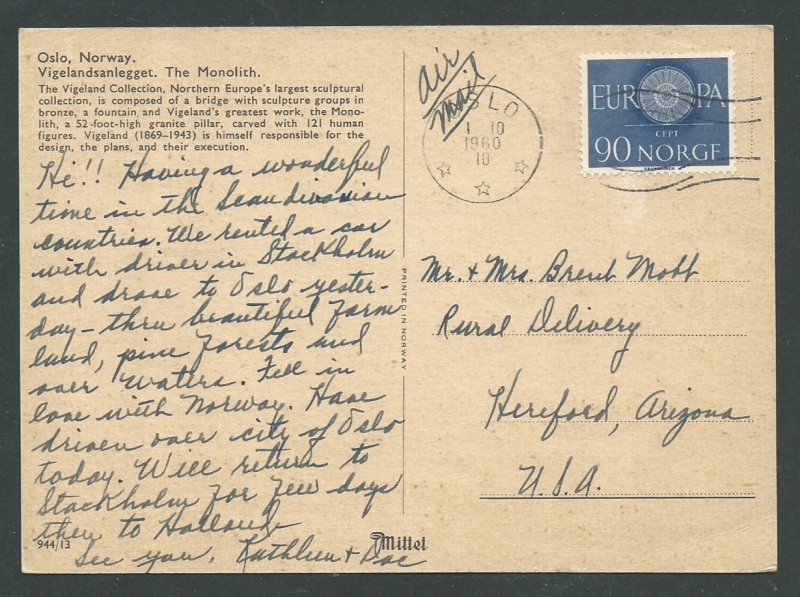 Oslo, Norway.
Vigelandsanlegget. The Monolith.
The Vigeland Collection, Northern Europe's largest sculptural
collection, is composed of a bridge with sculpture groups in
bronze, a fountain and Vigeland's greatest work, the Mono-
lith, a 52-foot-high granite pillar, carved with 121 human
figures. Vigeland (1869-1943) is himself responsible for the
design, the plans, and their execution.
Hi!! Having a wonderful
time in the Scandinavian
countries. We rented a car
with driver in Stockholm
and drove to Oslo yester-
day - thru beautiful farm
land, pine forests and
over waters. Fell in
love with Norway. Have
driven over city of Oslo
today. Will return to
Stockholm for few days
then to Holland
See you. Kathleen + Doc
944/13
Mittel
PRINTED IN NORWAY
air
mail
OSLO
1 10
1960
10
EUROPA
CEPT
90 NORGE
Mr. + Mrs. Brent Mobb
Rural Delivery
Hereford, Arizona
U.S.A.